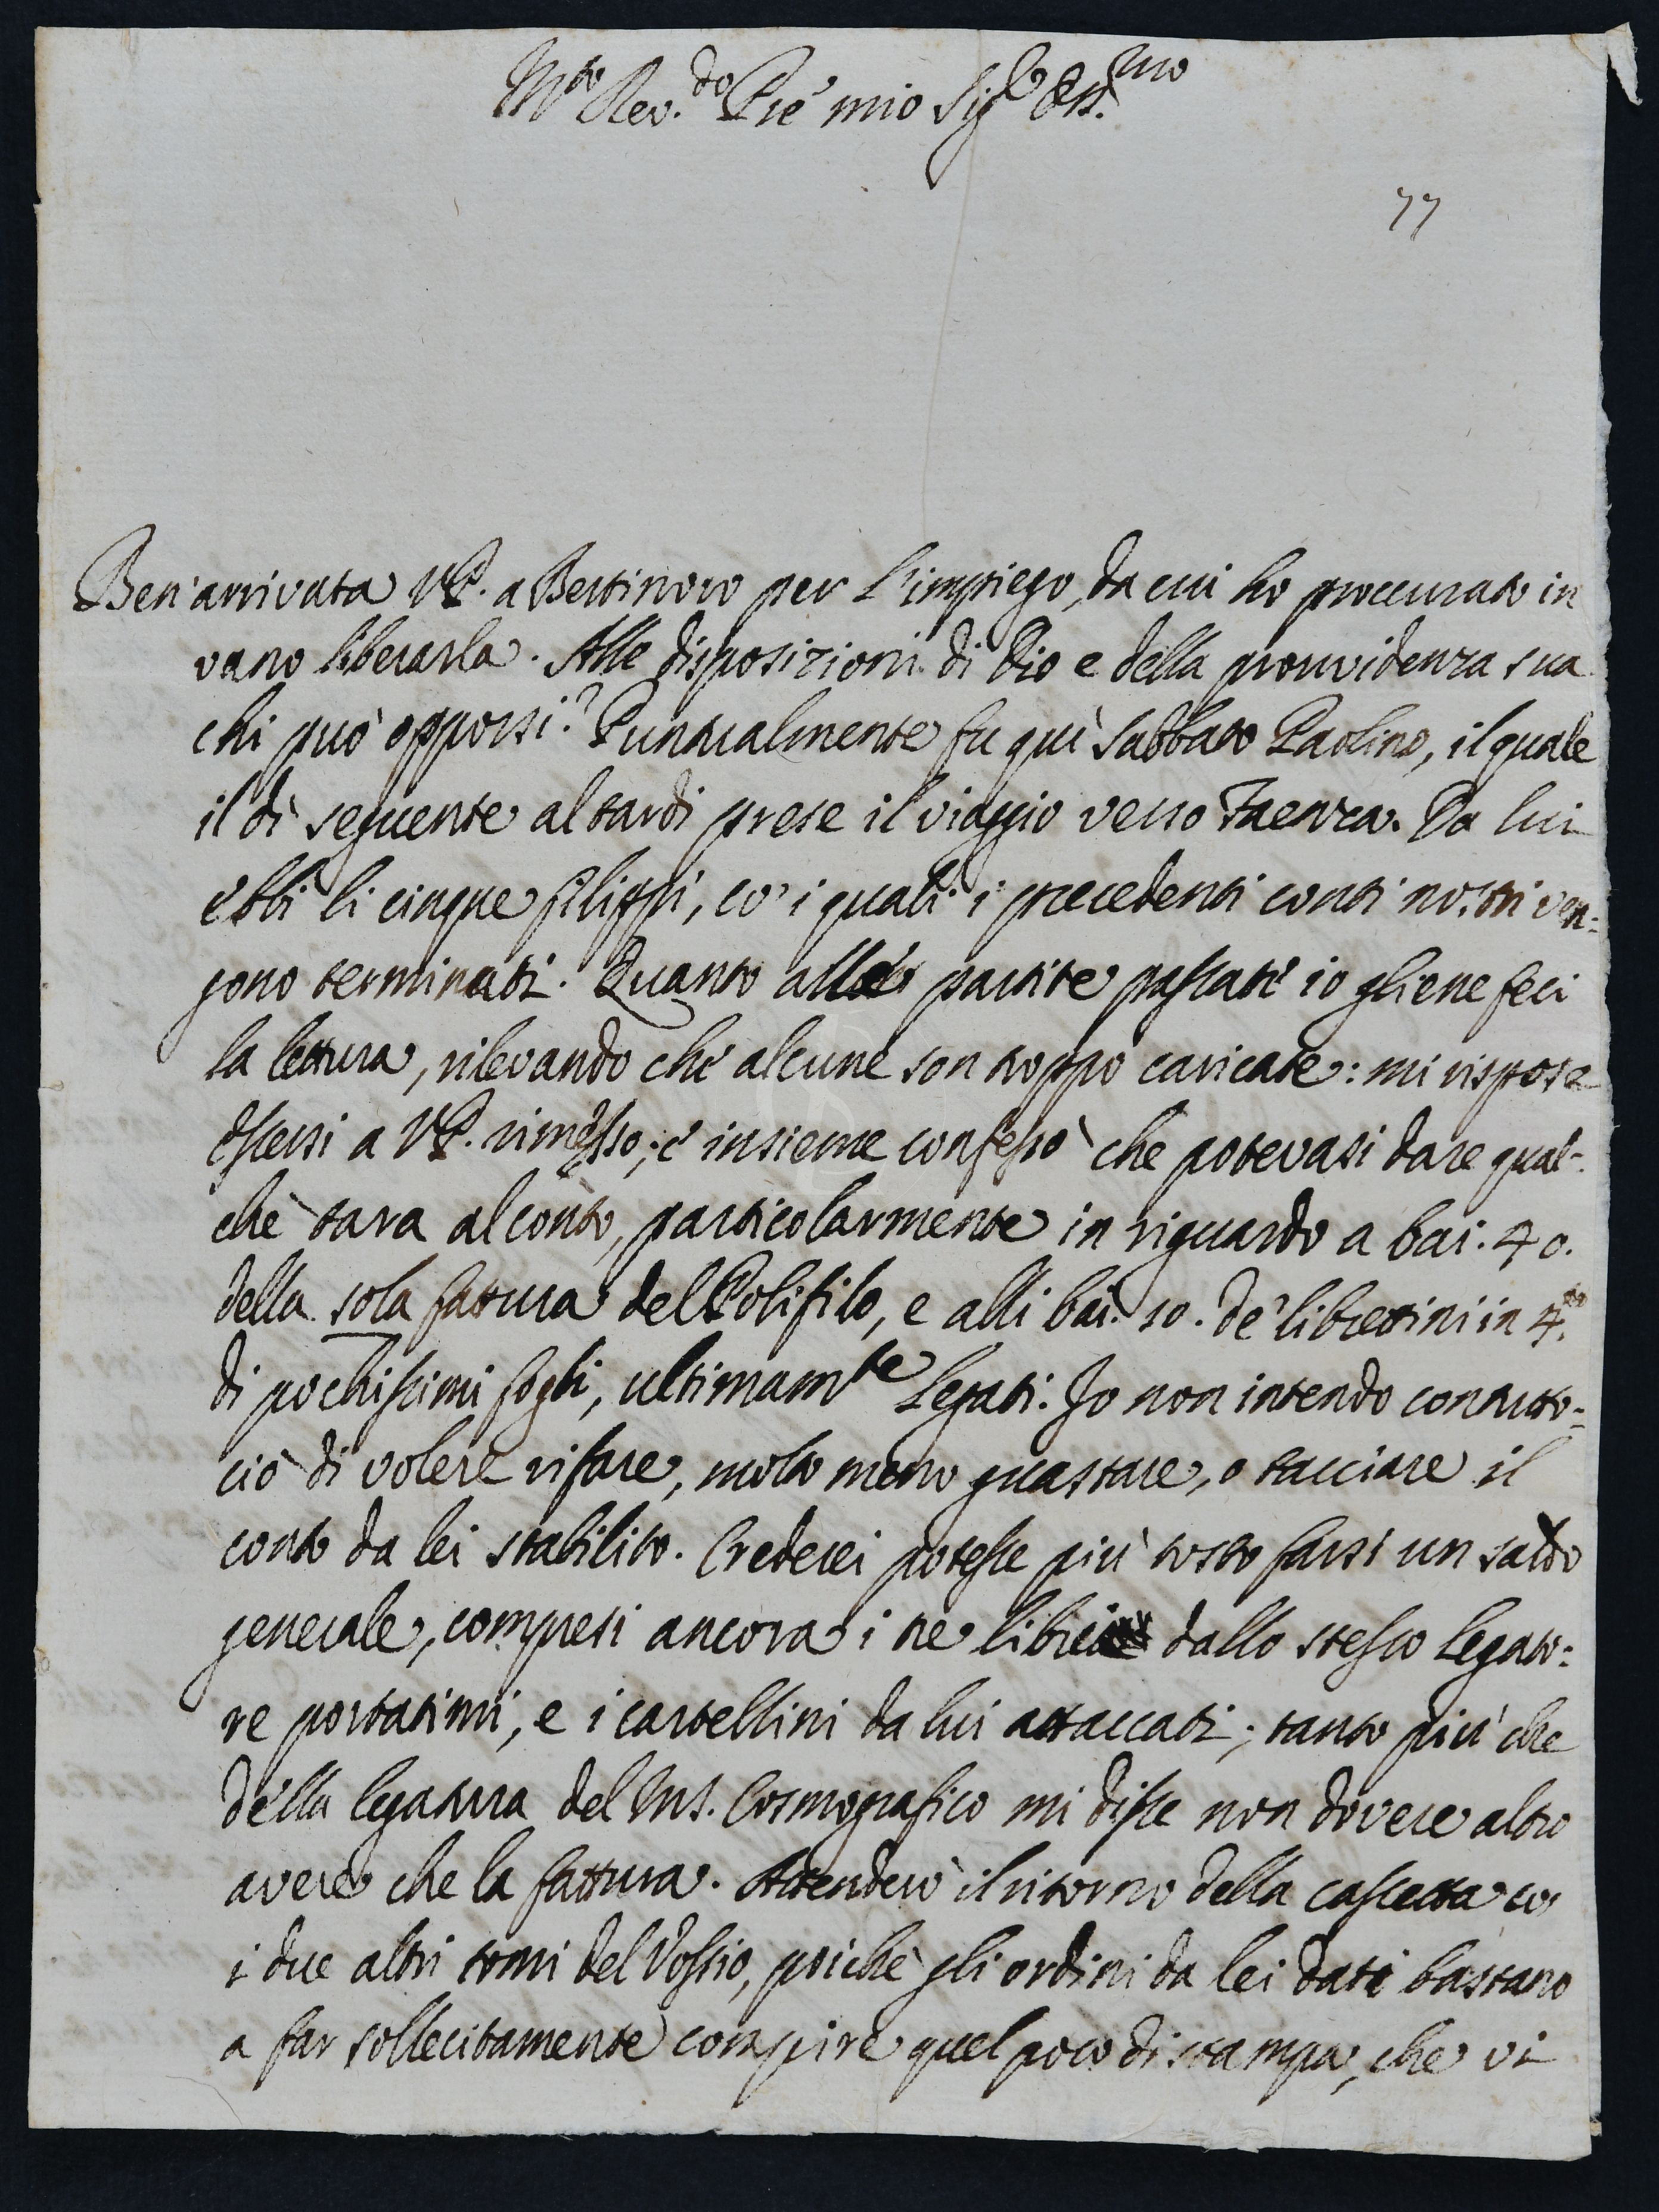 M.to Rev.do Pre' mio Sig.e Oss.mo
77
Ben'arrivata VP. a Bertinoro per l'impiego, da cui ho proccurato in
vano liberarla. Alle disposizioni di Dio e della provvidenza sua
chi può opporsi? Puntualmente fu quì sabbato Paolino, il quale
il dì seguente al tardi prese il viaggio verso Faenza. Da lui
ebbi li cinque filippi, co' i quali i precedenti conti nostri ven-
gono terminati. Quanto alle partite passate io gliene feci
la lettura, rilevando che alcune son troppo caricate: mi rispose
essersi a VP. rimesso; e insieme confessò che potevasi dare qual-
che tara al conto, particolarmente in riguardo a bai. 40.
della sola fattura del Polifilo, e alli bai. 10. de' librettini in 4.to
di pochissimi fogli, ultimam.te legati. Io non intendo contutto-
ciò di volere rifare, molto meno guastare, o tacciare il
conto da lei stabilito. Crederei potesse più tosto farsi un saldo
generale, compresi ancora i tre libri dallo stesso legato-
re portatimi, e i cartellini da lui attaccati; tanto più che
della legatura del Ms. Cosmografico mi disse non dovere altro
avere che la fattura. Attenderò il ritorno della cassetta co'
i due altri tomi del Vossio, poichè gli ordini da lei dati bastano
a far sollecitamente compire quel poco di stampa, che vi